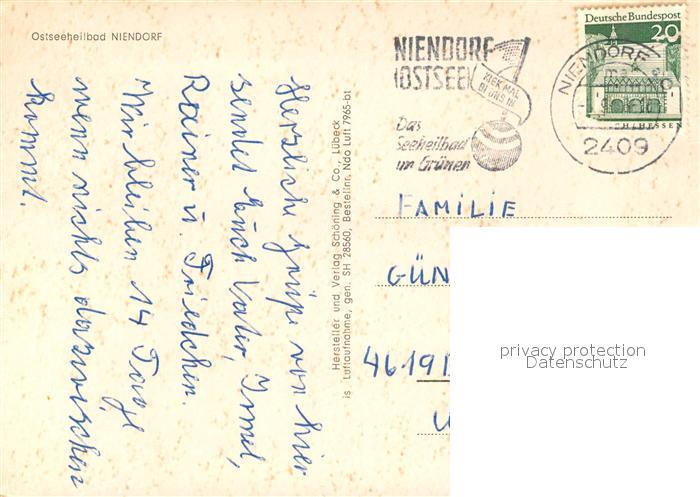 Ostseeheilbad NIENDORF
Herzliche Grüße von hier
sendet Euch Vater, Irmel,
Rainer u. Friedchen.
Wir bleiben 14 Tage
wenn nichts dazwischen
kommt.
Hersteller und Verlag Schöning & Co., Lübeck
is Luftaufnahme, gen. SH 28560, Bestellnr. Ndo Luft 7965-bt
NIENDORF
OSTSEE
KIEK MAL
BI UNS IN
Das
Seeheilbad
im Grünen
Deutsche Bundespost
20
HESSEN
NIENDORF
2409
FAMILIE
GÜN
4619
privacy protection
Datenschutz